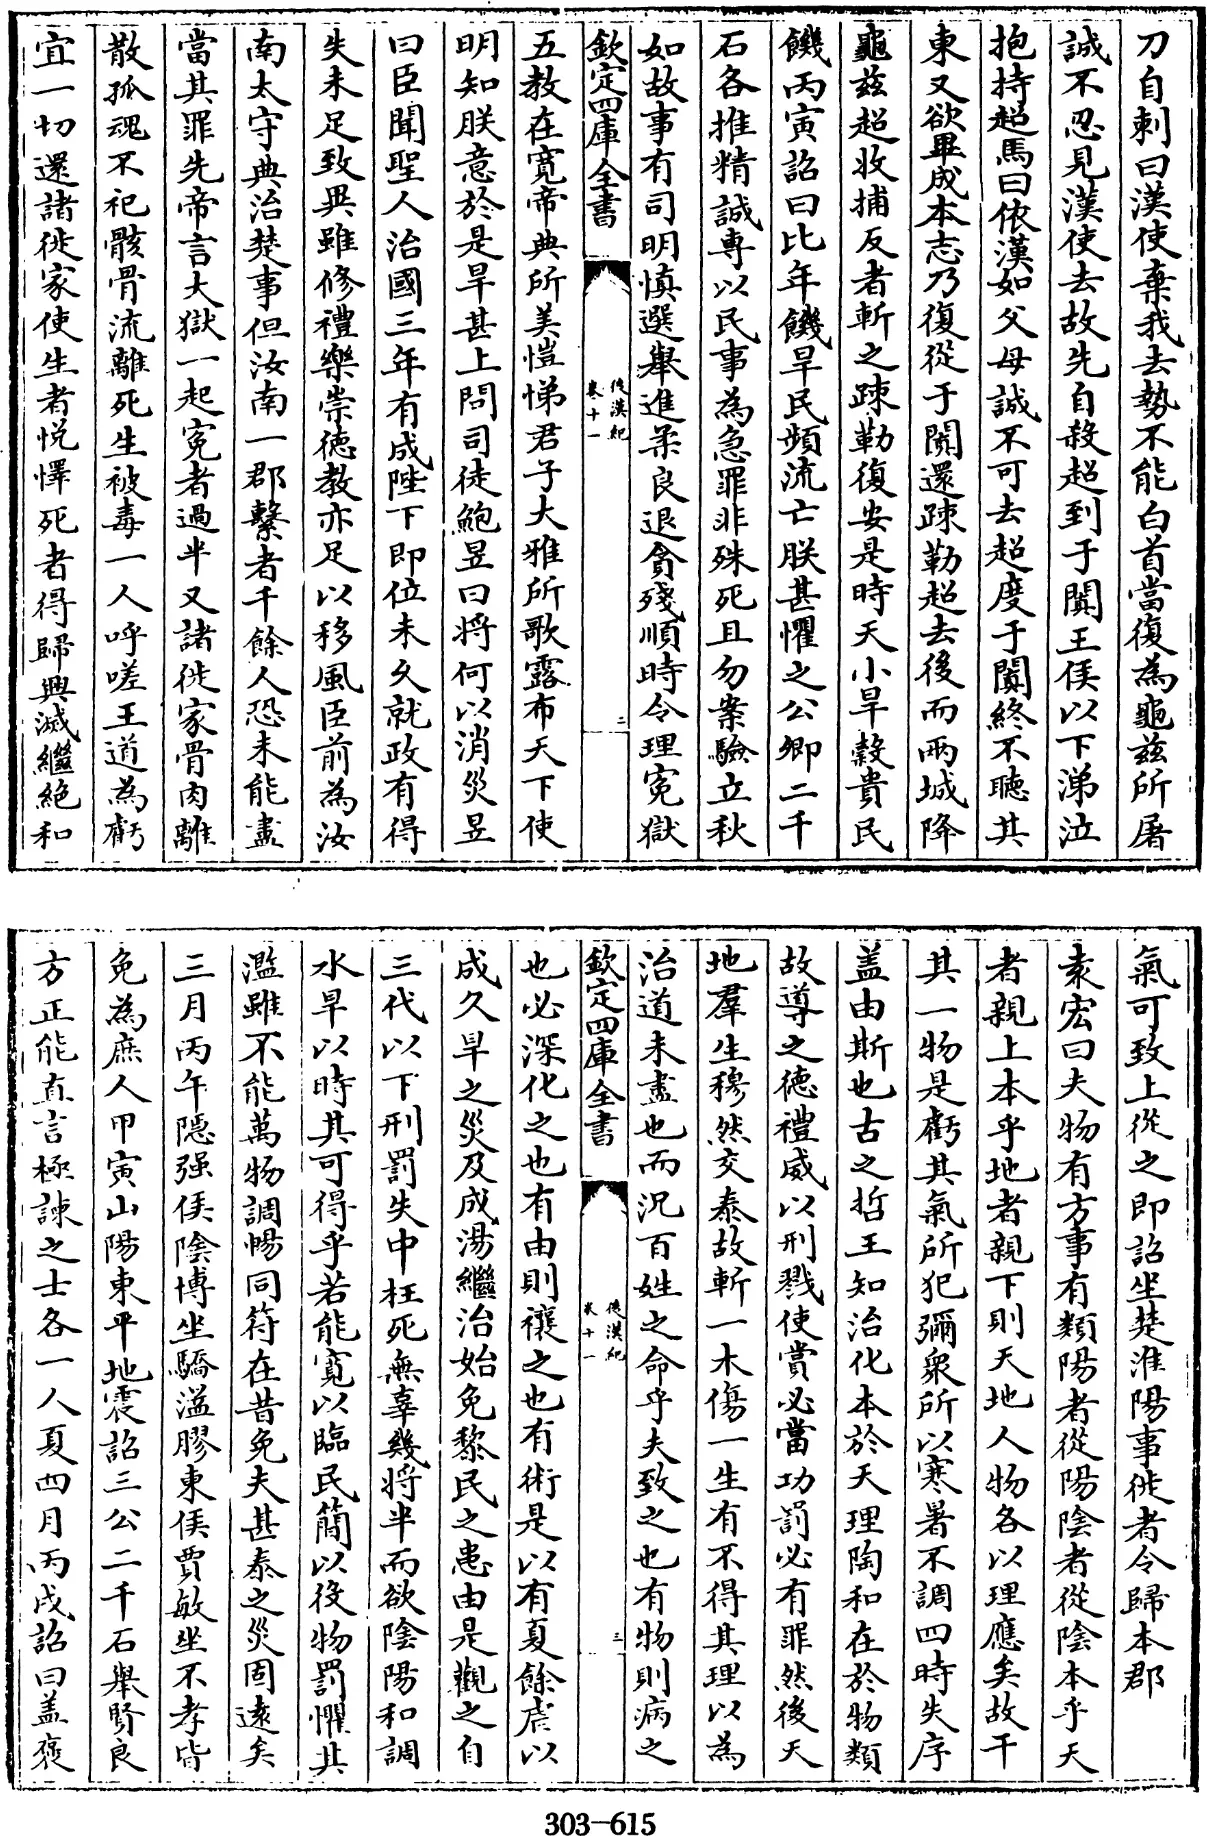 刀自刺曰漢使棄我去勢不能白首當復為龜茲所屠
誠不忍見漢使去故先自殺超到于闐王侯以下涕泣
抱持超馬曰依漢如父母誠不可去超度于闐終不聽其
東又欲畢成本志乃復從于闐還疎勒超去後而兩城降
龜茲超收捕反者斬之疎勒復安是時天小旱穀貴民
饑丙寅詔曰比年饑旱民頻流亡朕甚懼之公卿二千
石各推精誠專以民事為急罪非殊死且勿案驗立秋
如故事有司明慎選舉進柔良退貪殘順時令理寃獄
欽定四庫全書
後漢紀
卷十一
二
五教在寛帝典所美愷悌君子大雅所歌露布天下使
明知朕意於是旱甚上問司徒鮑昱曰將何以消災昱
曰臣聞聖人治國三年有成陛下即位未久就政有得
失未足致異雖修禮樂崇德教亦足以移風臣前為汝
南太守典治楚事但汝南一郡繫者千餘人恐未能盡
當其罪先帝言大獄一起寃者過半又諸徙家骨肉離
散孤魂不祀骸骨流離死生被毒一人呼嗟王道為虧
宜一切還諸徙家使生者悅懌死者得歸興滅繼絶和
氣可致上從之即詔坐楚淮陽事徙者令歸本郡
袁宏曰夫物有方事有類陽者從陽陰者從陰本乎天
者親上本乎地者親下則天地人物各以理應矣故干
其一物是虧其氣所犯彌衆所以寒暑不調四時失序
盖由斯也古之哲王知治化本於天理陶和在於物類
故導之德禮威以刑戮使賞必當功罰必有罪然後天
地羣生穆然交泰故斬一木傷一生有不得其理以為
治道未盡也而況百姓之命乎夫致之也有物則病之
欽定四庫全書
後漢紀
卷十一
三
也必深化之也有由則禳之也有術是以有夏餘虐以
成久旱之災及成湯繼治始免黎民之患由是觀之自
三代以下刑罰失中枉死無辜幾將半而欲陰陽和調
水旱以時其可得乎若能寛以臨民簡以役物罰懼其
濫雖不能萬物調暢同符在昔免夫甚泰之災固遠矣
三月丙午隱强侯陰博坐驕溢膠東侯賈敏坐不孝皆
免為庶人甲寅山陽東平地震詔三公二千石舉賢良
方正能直言極諫之士各一人夏四月丙戌詔曰盖褒
303-615